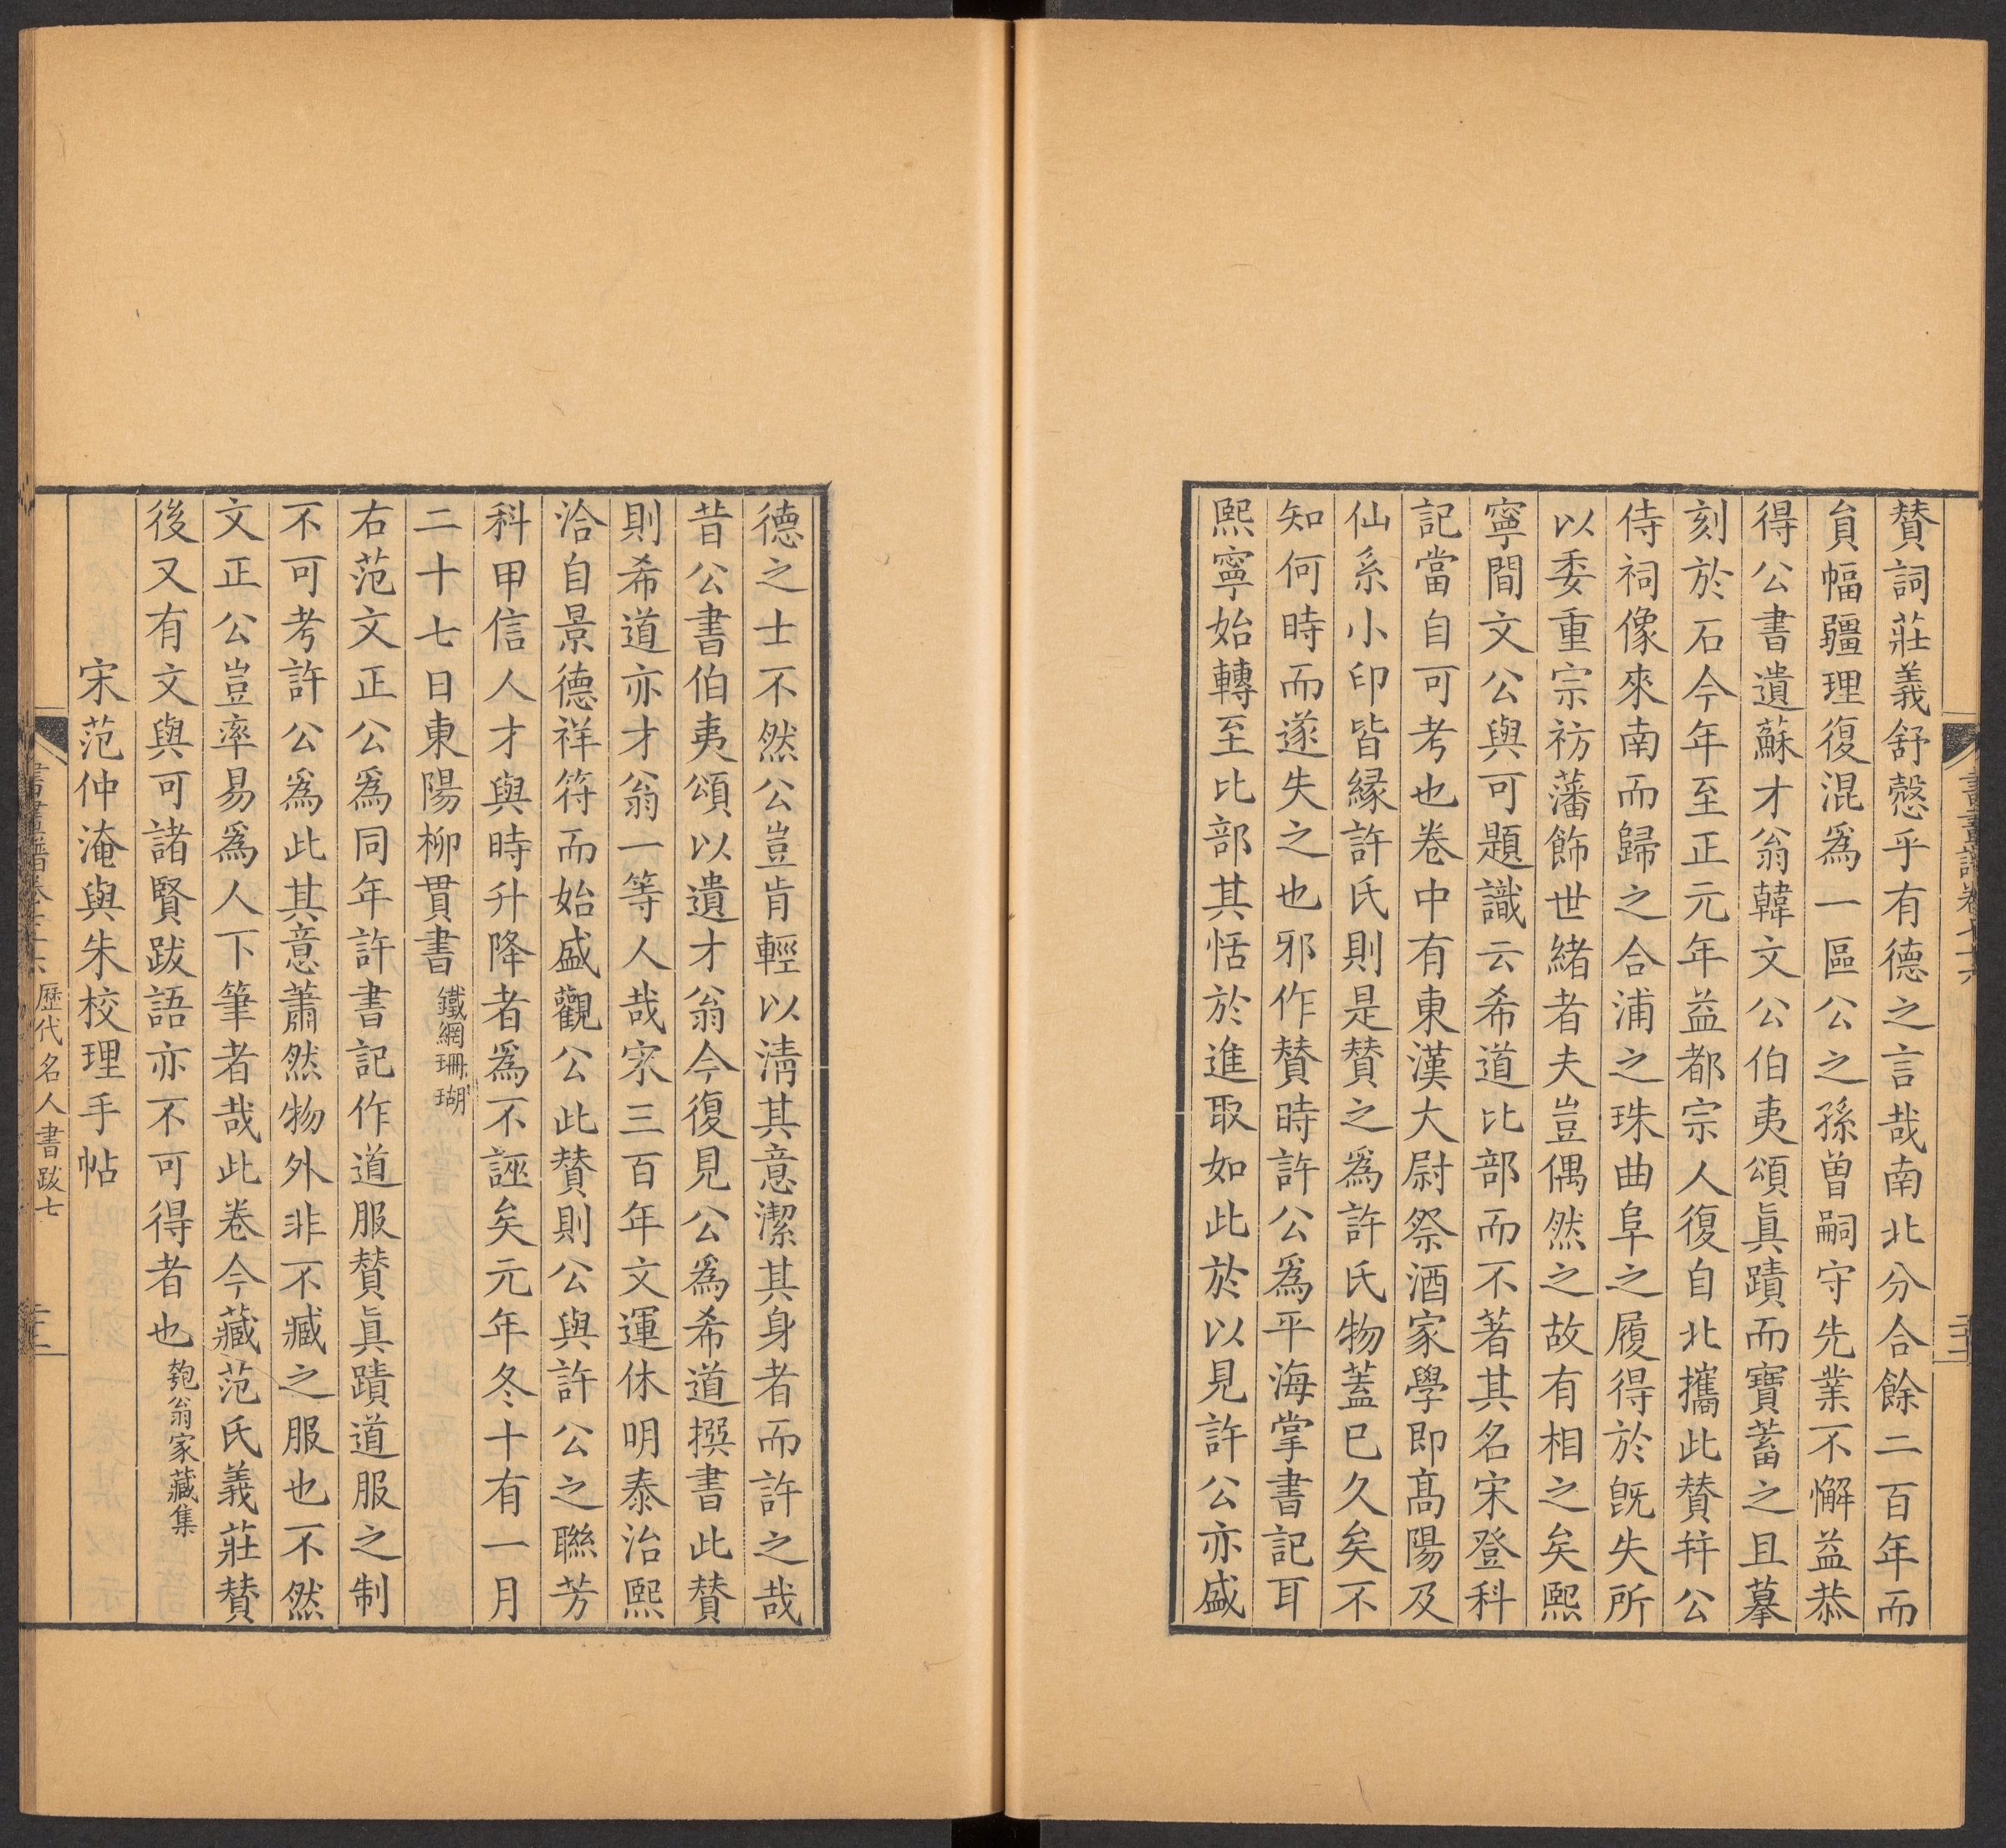 贊詞莊義舒慤乎有德之言哉南北分合餘二百年而
負幅疆理復混爲一區公之孫曾嗣守先業不懈益恭
得公書遺蘇才翁韓文公伯夷頌眞蹟而寶蓄之且摹
刻於石今年至正元年益都宗人復自北攜此贊并公
侍祠像來南而歸之合浦之珠曲阜之履得於旣失所
以委重宗祊藩飾世緒者夫豈偶然之故有相之矣熙
寧間文公與可題識云希道比部而不著其名宋登科
記當自可考也卷中有東漢大尉祭酒家學即高陽及
仙系小印皆縁許氏則是贊之爲許氏物蓋已久矣不
知何時而遂失之也邪作贊時許公爲平海掌書記耳
熙寧始轉至比部其恬於進取如此於以見許公亦盛
德之士不然公豈肯輕以清其意潔其身者而許之哉
昔公書伯夷頌以遺才翁今復見公爲希道撰書此贊
則希道亦才翁一等人哉宋三百年文運休明泰治熙
洽自景德祥符而始盛觀公此贊則公與許公之聯芳
科甲信人才與時升降者爲不誣矣元年冬十有一月
二十七日東陽柳貫書 鐵網珊瑚
右范文正公爲同年許書記作道服贊眞蹟道服之制
不可考許公爲此其意蕭然物外非不臧之服也不然
文正公豈率易爲人下筆者哉此卷今藏范氏義莊贊
後又有文與可諸賢跋語亦不可得者也 匏翁家藏集
宋范仲淹與朱校理手帖
歷代名人書跋七